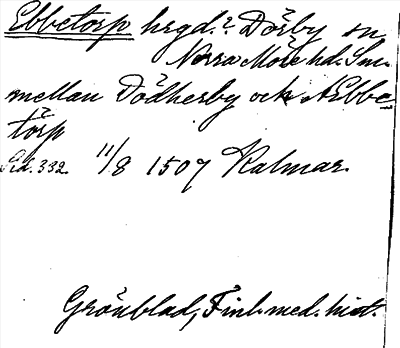 Ebbetorp hrgd.? Dörby sn
Norra Möre hd. Sm.
mellan Dödherby och Æbbe-
törp
Sid. 332. 11/8 1507 Kalmar.
Grönblad, Finl. med. hist.